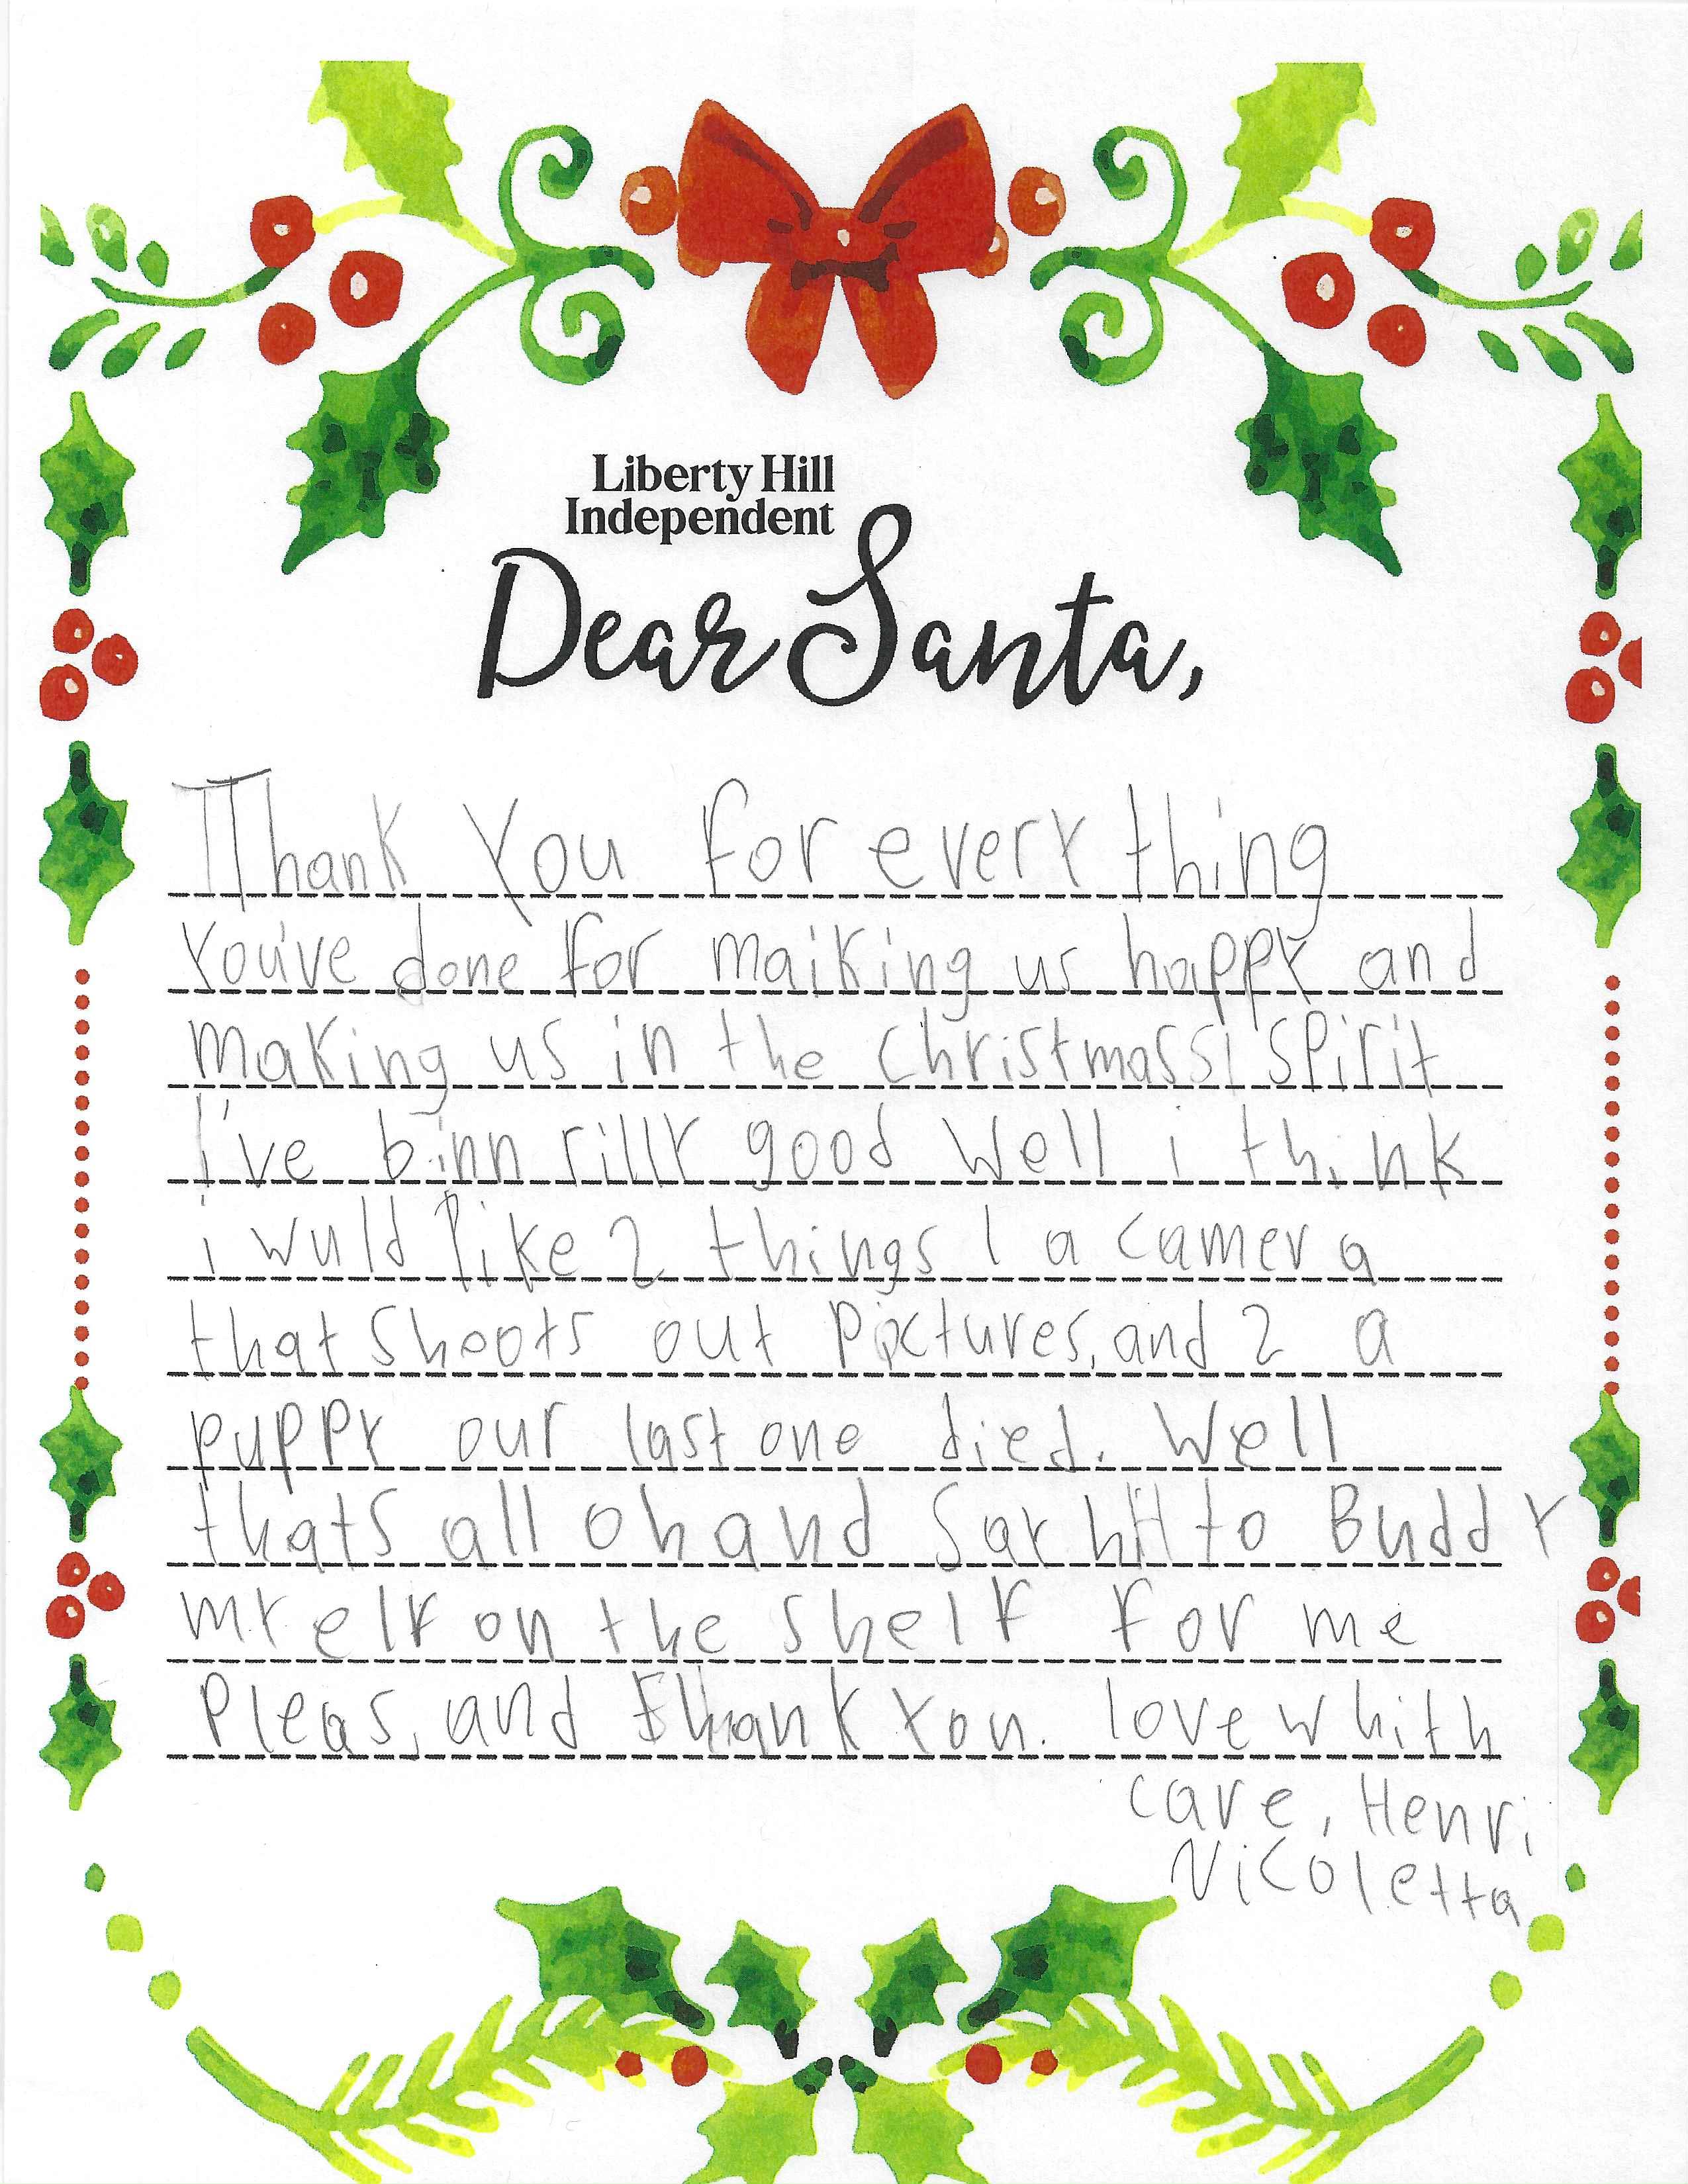 Liberty Hill
Independent
Dear Santa,
Thank You for every thing
You've done for maiking us happy and
making us in the christmass spirit
I've binn rilly good Well i think
i wuld like 2 things 1 a camera
that shoots out pictures, and 2 a
puppy our last one died. Well
thats all oh and say hi to Buddy
my elf on the shelf for me
Pleas, and thank you. love whith
care, Henri
Nicoletta